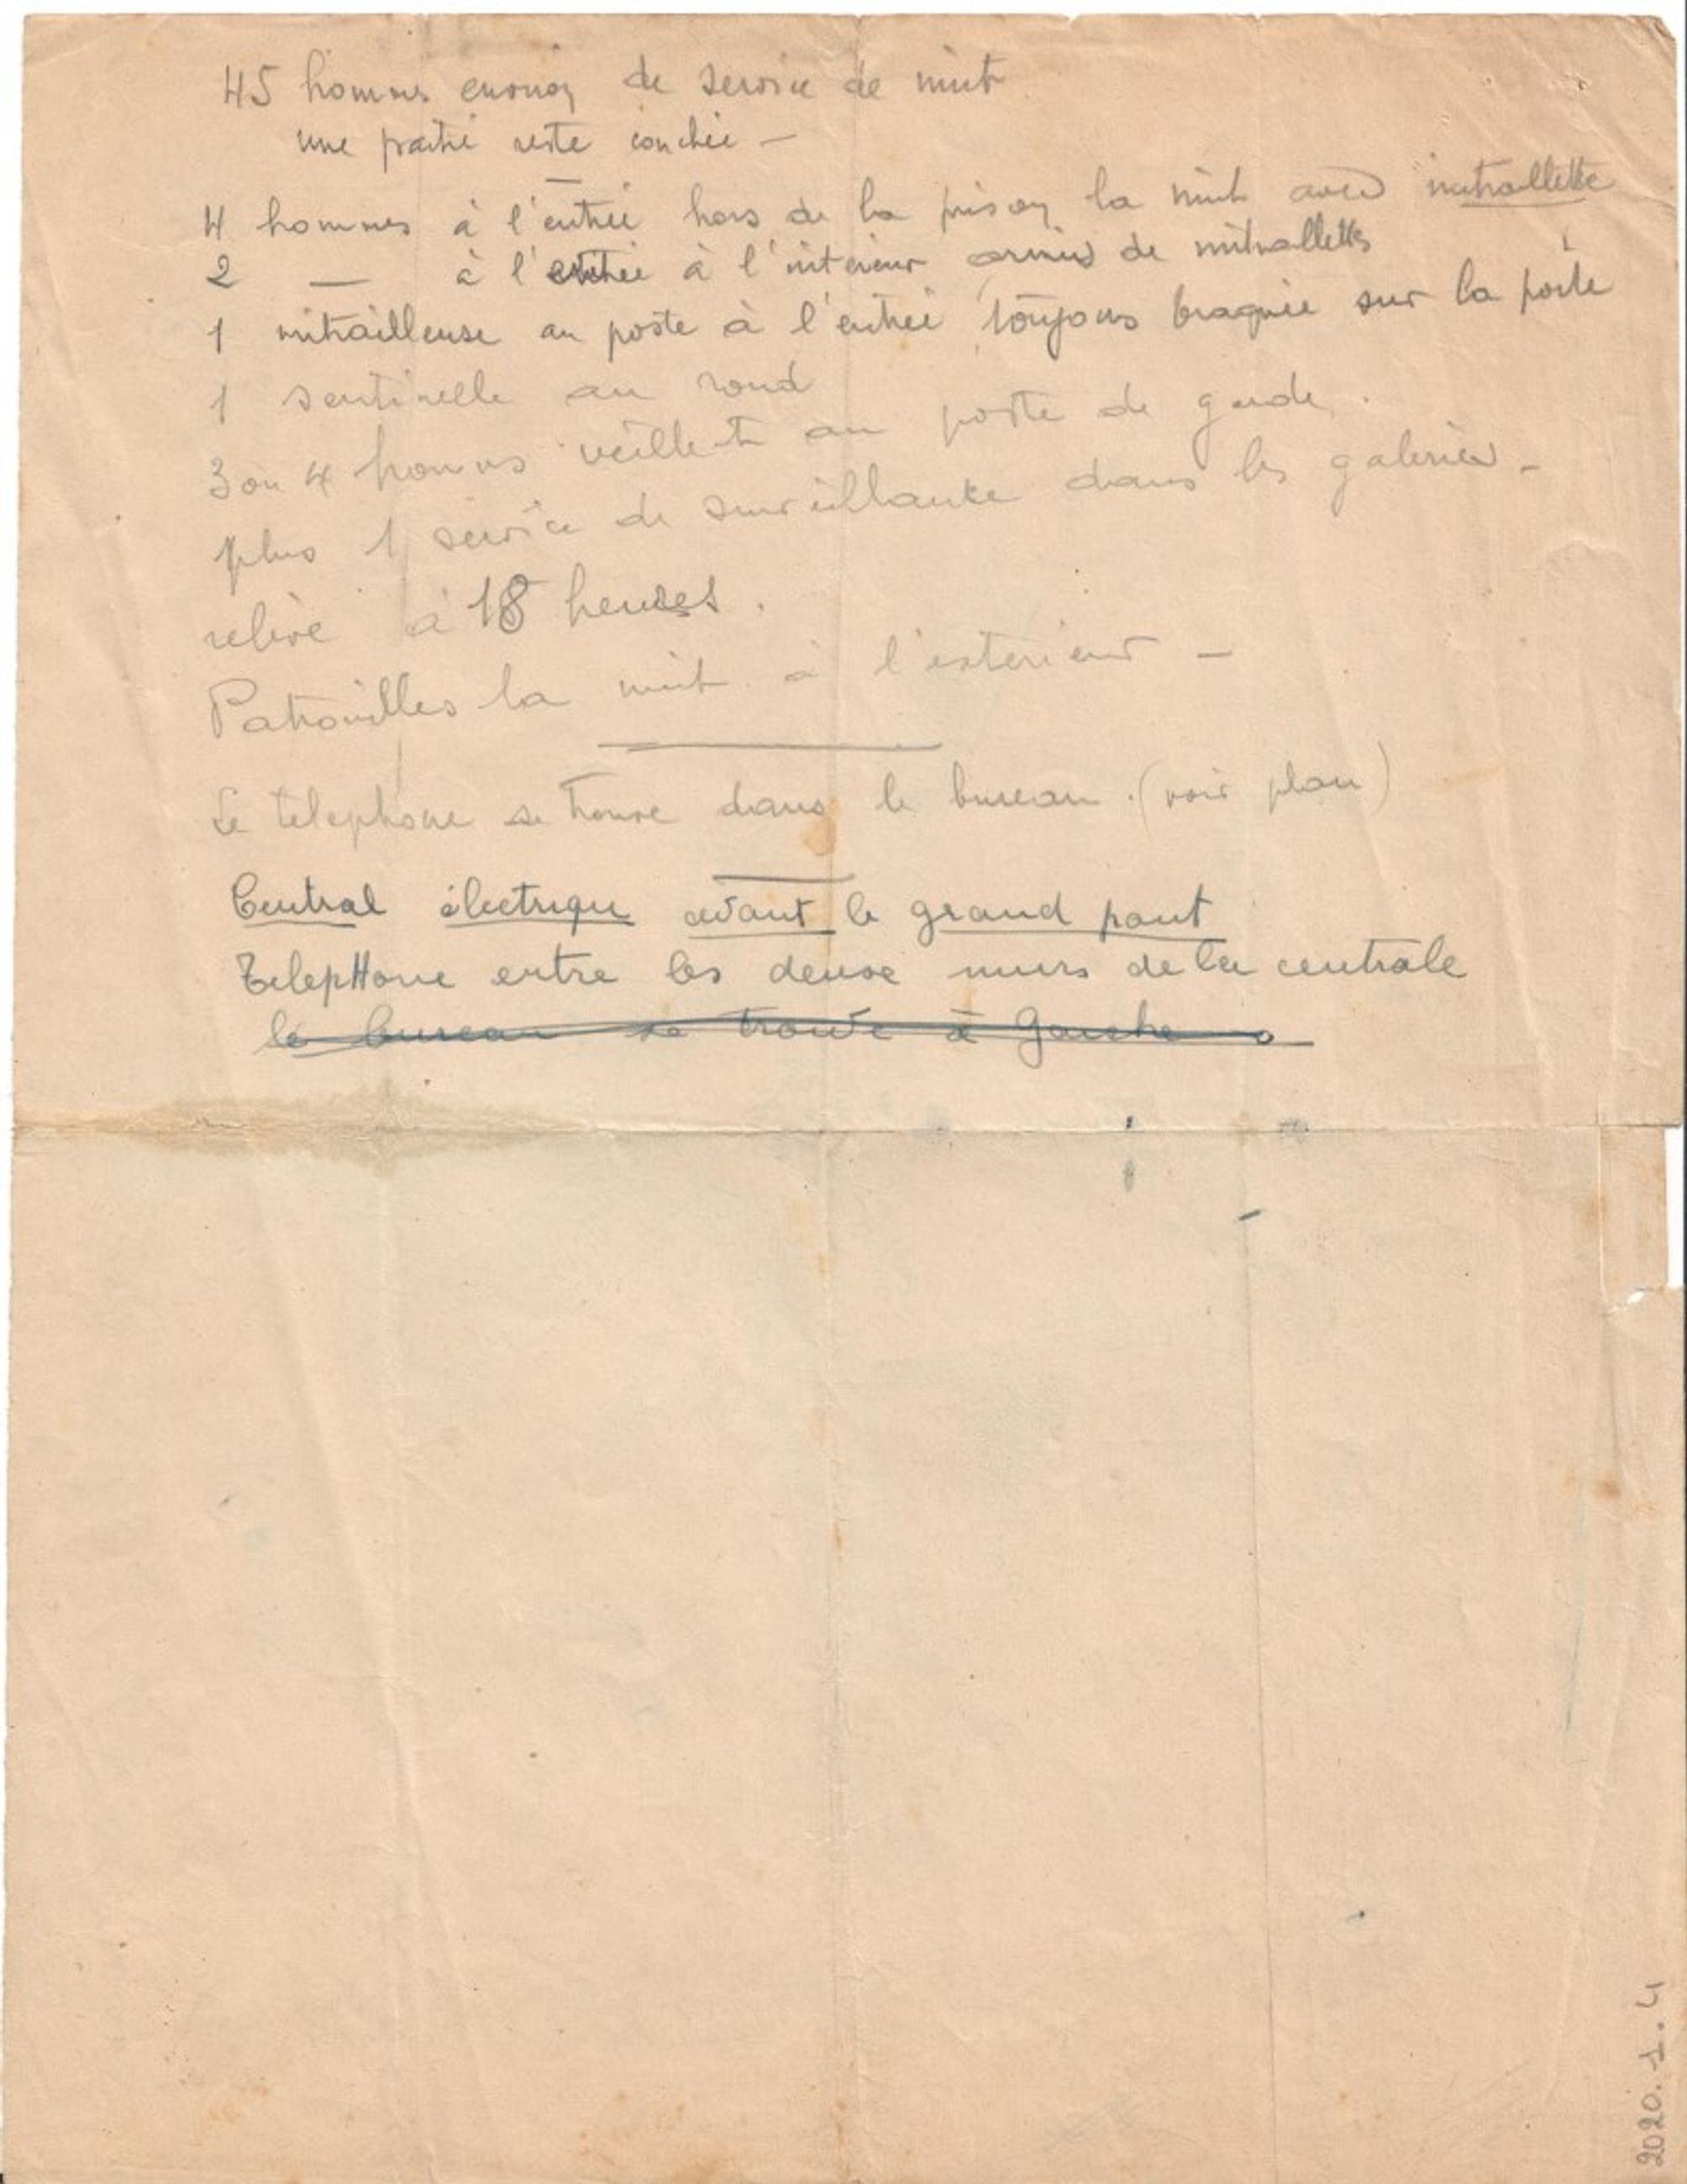 45 hommes environ de service de nuit
une partie reste couchée —
4 hommes à l'entrée hors de la prison la nuit avec mitraillette
2 — à l'entrée à l'interieur armés de mitraillettes
1 mitrailleuse au poste à l'entrée toujours braquée sur la porte
1 sentinelle au rond
3 ou 4 hommes veillent au poste de garde.
plus 1 service de surveillance dans les galeries —
relève à 18 heures.
Patrouilles la nuit à l'exterieur —
Le telephone se trouve dans le bureau. (voir plan)
Central électrique avant le grand pont
TelepHone entre les deuxe murs de la centrale
le bureau se trouve à Gauche
2020.1.4